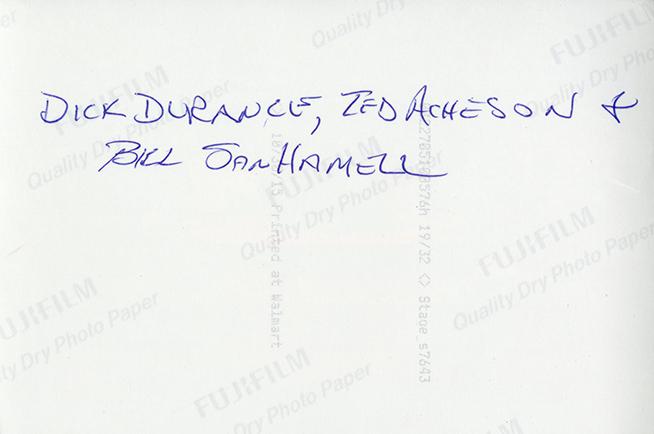 DICK DURANCE, TED ACHESON &
BILL SANHAMELL
FUJIFILM
Quality Dry Photo Paper
Printed at Walmart
19/32 <> Stage s7643
FUJIFILM
Quality Dry Photo Paper
FUJIFILM
Quality Dry Photo Paper
FUJIFILM
Quality Dry Photo Paper